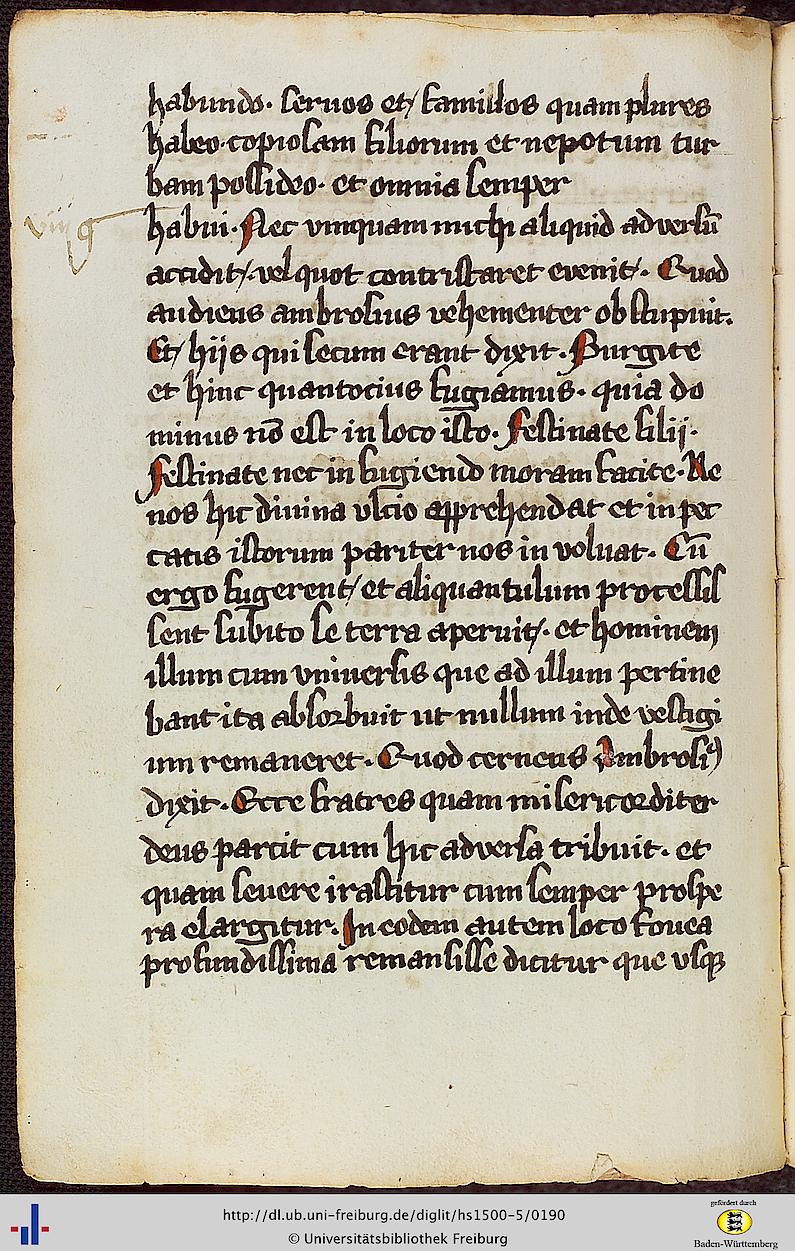 habundo. seruos et famillos quam plures
habeo. copiosam filiorum et nepotum tur
bam possideo. et omnia semper
habui. Nec vmquam michi aliquid adversū
accidit. vel quot contristaret evenit. Quod
audiens ambrosius vehementer obstupuit.
Et hijs qui secum erant dixit. Surgite
et hinc quantocius fugiamus. quia do
minus nō est in loco isto. Festinate filij.
Festinate nec in fugiendo moram facite. Ne
nos hic divina vlcio apprehendat et in pec
catis istorum pariter nos in voluat. Cū
ergo fugerent et aliquantulum processis
sent subito se terra aperuit. et hominem
illum cum vniversis que ad illum pertine
bant ita absorbuit ut nullum inde vestigi
um remaneret. Quod cernens Ambrosiꝰ
dixit. Ecce fratres quam misericorditer
deus parcit cum hic adversa tribuit. et
quam severe irascitur cum semper prospe
ra elargitur. In eodem autem loco fovea
profundissima remansisse dicitur que vsqꝫ
viij g
http://dl.ub.uni-freiburg.de/diglit/hs1500-5/0190
© Universitätsbibliothek Freiburg
gefördert durch
Baden-Württemberg